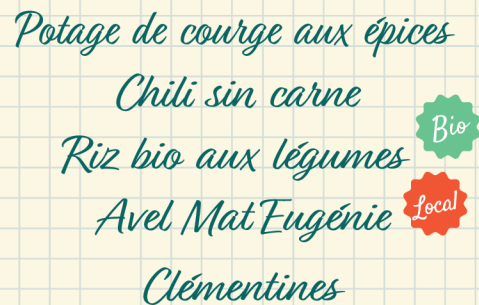 Potage de courge aux épices
Chili sin carne
Riz bio aux légumes
Bio
Avel Mat Eugénie
Local
Clémentines